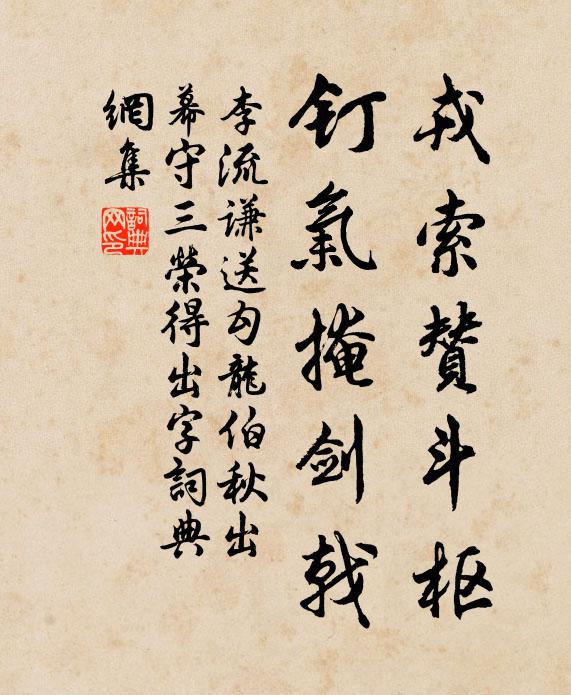 戎索贊斗枢
釘氣掩劍戟
李流謙送勾龍伯秋出
幕守三榮得出字詞典
網集
詞典网印